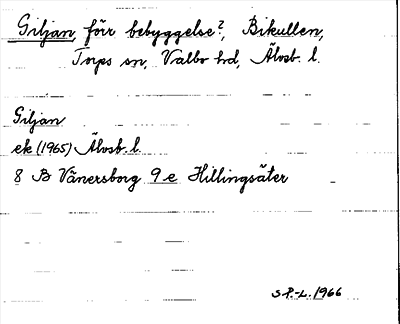 Giljan, förr bebyggelse?, Bikullen,
Torps sn, Valbo hd, Älvsb. l.
Giljan
ek (1965) Älvsb. l.
8 B Vänersborg 9 e Hillingsäter
S P.-L. 1966